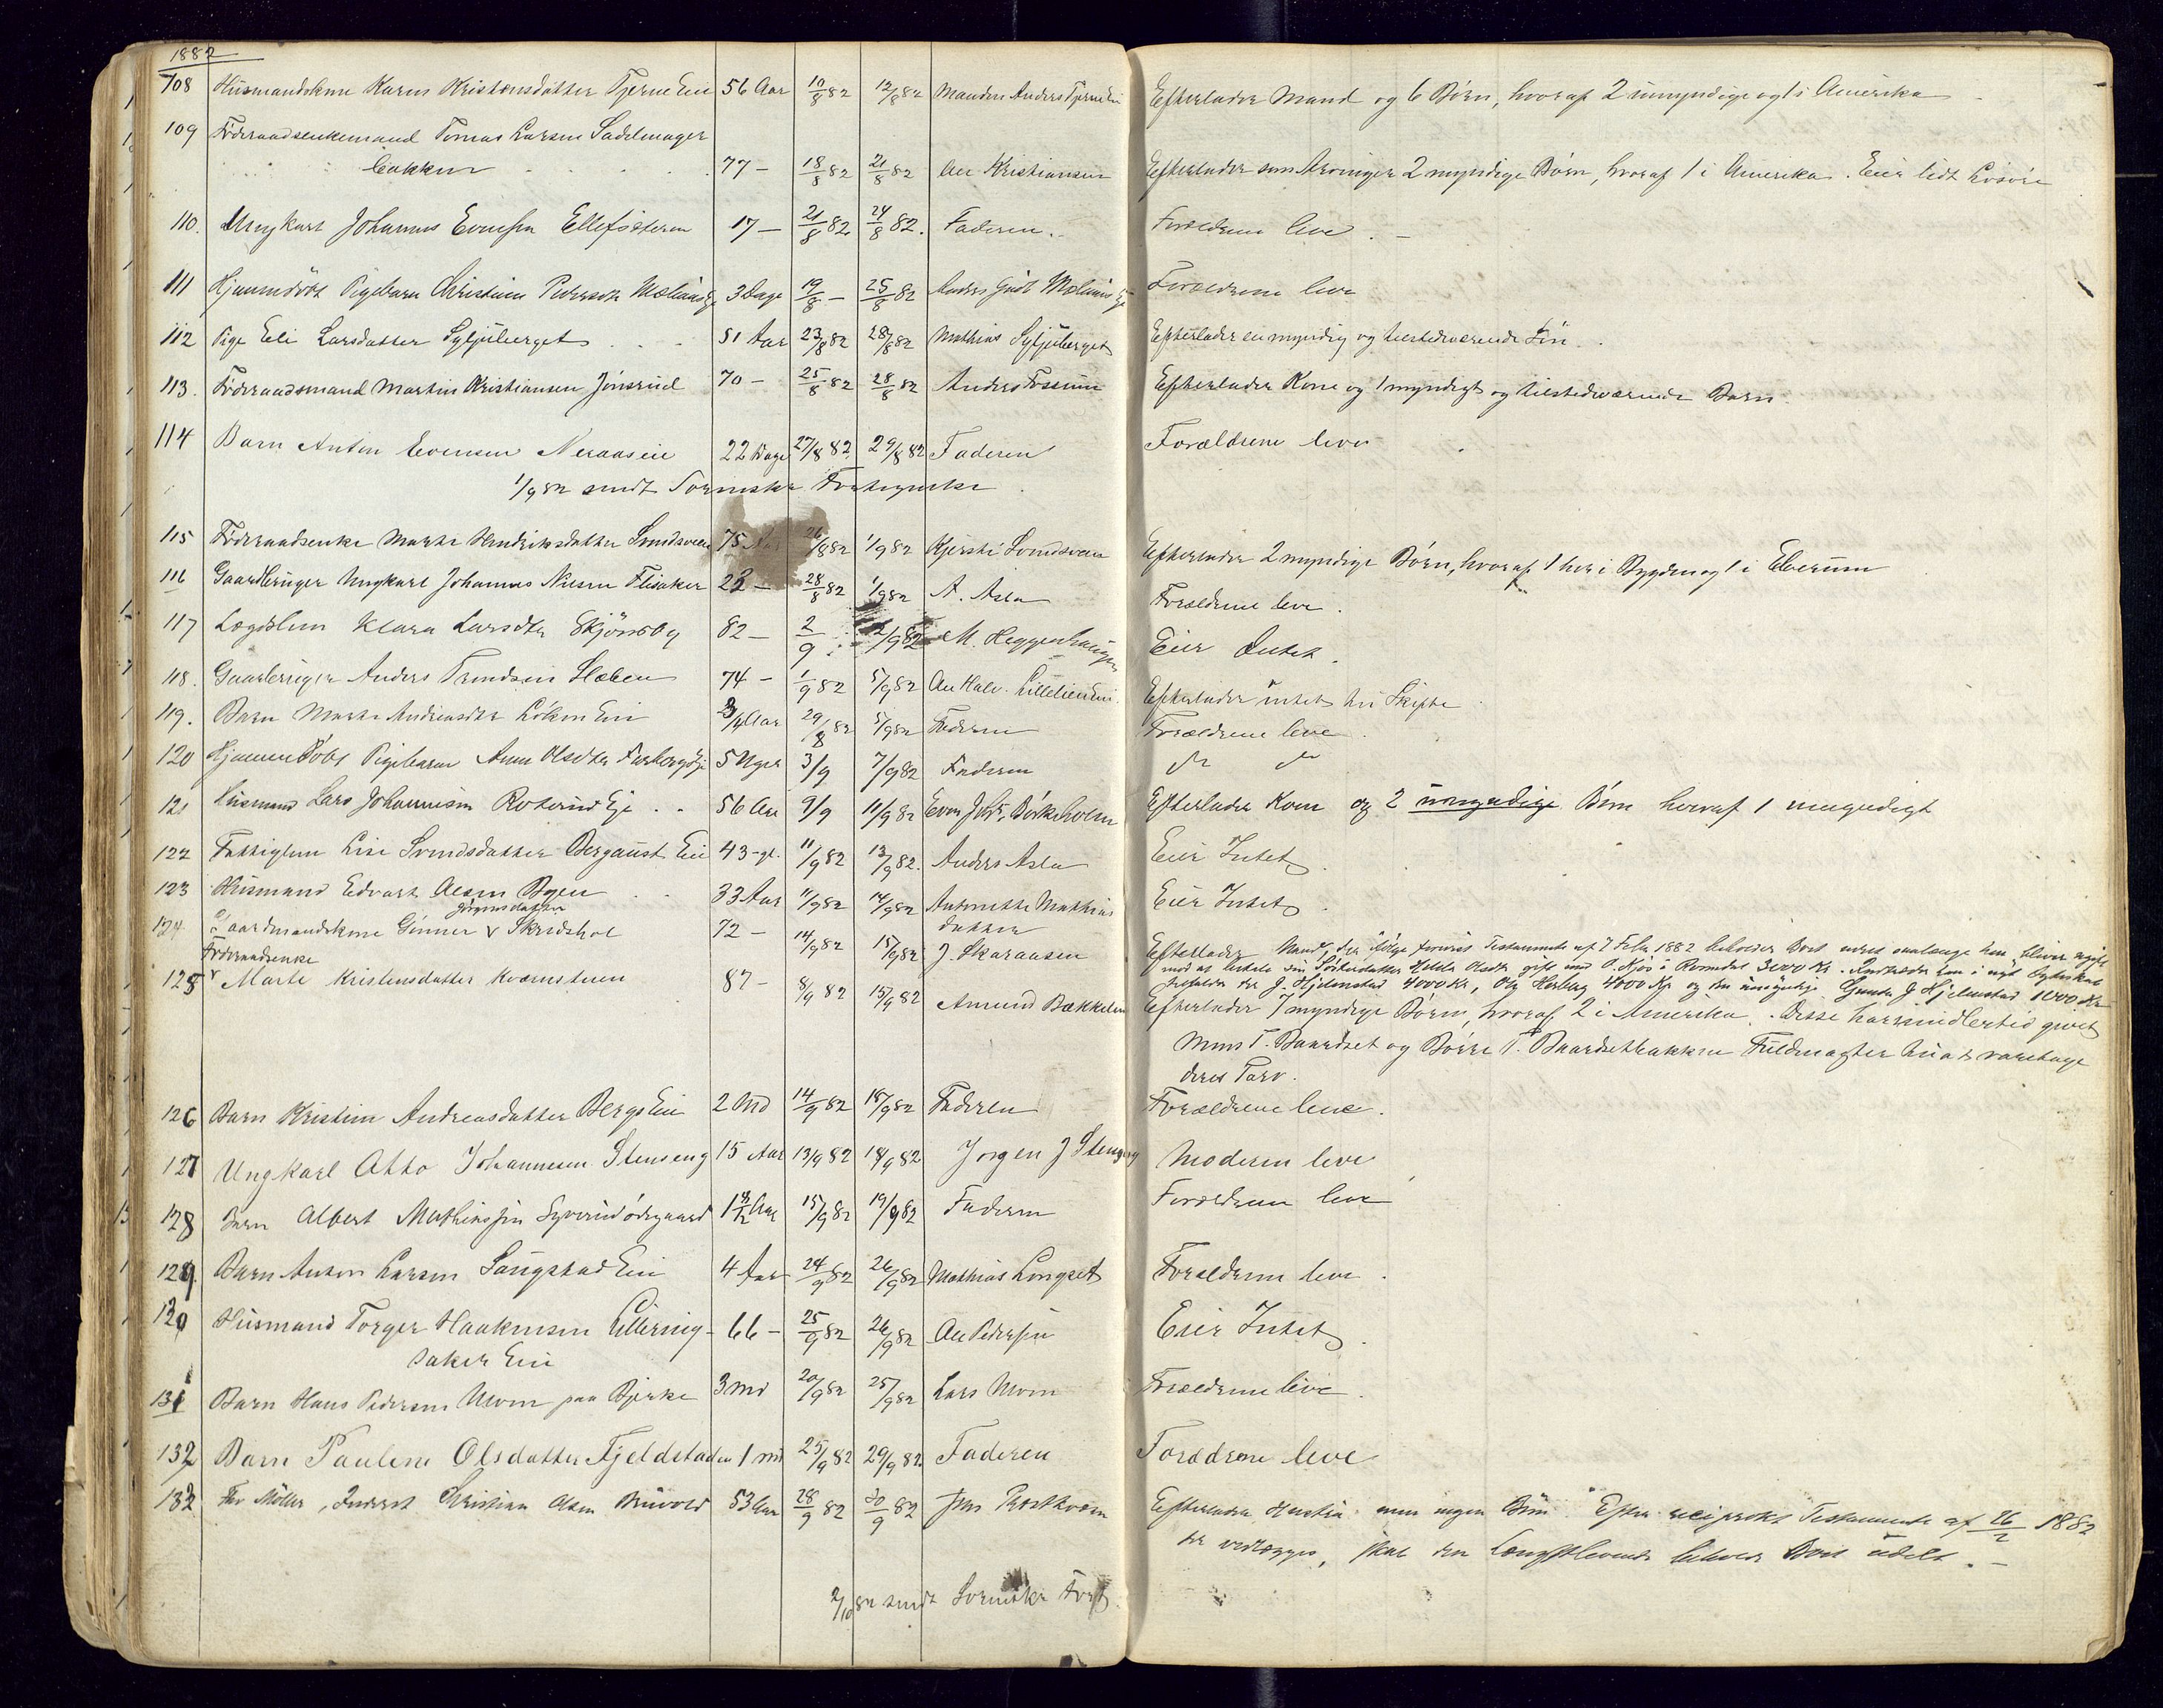 1882
108 Husmandskone Karen Kristensdatter Tjerne Eie 56 Aar 10/8 82 12/8 82 Manden Anders Tjerne Eie Efterlader Mand og 6 Børn, hvoraf 2 umyndige og 1 i Amerika
109 Föderaadsenkemand Tomas Larsen Sadelmager
bakken 77 – 18/8 82 21/8 82 Ole Kristiansen Efterlader som Arvinger 2 myndige Børn, hvoraf 1 i Amerika. Eier lidt Løsöre
110. Ungkarl Johannes Evensen Ellefsæteren 17 – 21/8 82 24/8 82. Faderen. Forældrene leve. –
111 Hjemmedöbt Pigebarn Christine Pedersdtr 3 Dage 19/8 – 25/8 82 Anders Forældrene leve
112 Pige Eli Larsdatter Syljuberget 51 Aar 23/8 82 28/8 82 Mathias Syljuberget Efterlader en myndig og tilstedeværende Sön.
113. Föderaadsmand Martin Kristiansen Jönsrud 70 – 25/8 82 28/8 82 Anders Fossum Efterlader Kone og 1 myndigt og tilstedeværende Barn.
114 Barn Anton Evensen Neraaseie 22 Dage 27/8 82 29/8 82 Faderen Forældrene lever
1/9 82 sendt Sorenskr Fortegnelse.
115 Föderaadsenke Marte Hendriksdatter Svendsveen 75 Aar 26/8 82 1/9 82 Kjersti Svendsveen Efterlader 2 myndige Börn, hvoraf 1 her i Bygden og 1 i Elverum
116 Gaardbruger Ungkarl Johannes Nilsen Flisaker 23 – 28/8 82 1/9 82 A. Asla Forældrene leve.
117 Lægdslem Klara Larsdtr Skjönsby 82 – 2/9 2/9 82 M. Heggenhaugen Eier Intet.
118. Gaardbruger Anders Trondsen Hæben 74 – 1/9 82 5/9 82 Ole Halv. Lillelien Eie. Efterlader intet til Skifte
119. Barn Marte Andreasdtr Löken Eie 3/4 Aar 29/8 82 5/9 82 Faderen Forældrene leve
120 Hjemmedöbt Pigebarn Anne Olsdtr Furuberg Eje 5 Uger 3/9 7/9 82 Faderen do do
121 Husmand Lars Johannesen Roterud Eje 56 Aar 9/9 11/9 82 Even Johs. Birkeholen Efterlader Kone og 2 umyndige Börn heraf 1 umyndigt
122 Fattiglem Lise Svendsdatter Bergaust Eie 43 – gl. 11/9 82 13/9 82. Anders Asla Eier Intet
123 Husmand Edvart Olesen Byen 33 Aar 11/9 82 14/9 82 Antonette Mathias
datter Eier Intet.
124 Gaardmandskone Gunner Jörgensdatter Skredshol 72 – 14/9 82 15/9 82 J. Skaraasen Efterlader Mand, der ifölge Testamente af 7 Febr 1882 beholder Boet saalænge han bliver ugift
mod at betale sin Sösterdatter Helde Olsdtr gift med O. Kjös i Romedal 3000 Kr. Indtræder han i nyt Egteskab
tilfalder der J. Hjelmstad 4000 Kr, Ole Herberg 4000 Kr og den umyndige Gunda J Hjelmstad 1000 Kr
125 Föderaadsenke Marte Kristensdatter Kværnstuen 87 – 8/9 82 15/9 82 Amund Bækkelien Efterlader 7 myndige Börn, hvoraf 2 i Amerika. Disse har imidlertid givet
Mons T. Baardset og Börre T. Baardsetbakken Fuldmagter til at varetage
deres Tarv.
126 Barn Kristine Andreasdatter Bergs Eie 2 Md 14/9 82 18/9 82 Faderen Forældrene leve.
127 Ungkarl Otto Johannesen Stenseng 15 Aar 13/9 82 18/9 82 Jørgen J Stenseng Moderen leve
128 Barn Albert Mathiassen Syverudödegaard 15/9 82 19/9 82 Faderen Forældrene leve
129. Barn Anton Larsen Saugstad Eie 4 Aar 24/9 82 26/9 82 Mathias Longset Forældrene leve.
130 Husmand Torger Haakensen Lillering-
saker Eie 66 – 25/9 82 26/9 82 Ole Pedersen Eier Intet.
131 Barn Hans Pedersen Moen paa Bjerke 3 Md 20/9 82 25/9 82 Lars Moen Forældrene leve.
132 Barn Pauline Olsdatter Fjeldstaden 1 md 25/9 82 29/9 82. Faderen Forældrene leve
132 Fhv Möller, Inderst Christian Olsen Bruvold 53 Aar 28/9 82 30/9 82 Jens Prestkværn Efterlader Hustru men ingen Börn. Efter reciprokt Testamente af 26/2 1882
der vedlægges, skal den Længstlevende beholde Boet udelt. –
2/10 82 sendt Sorenskr Fort.